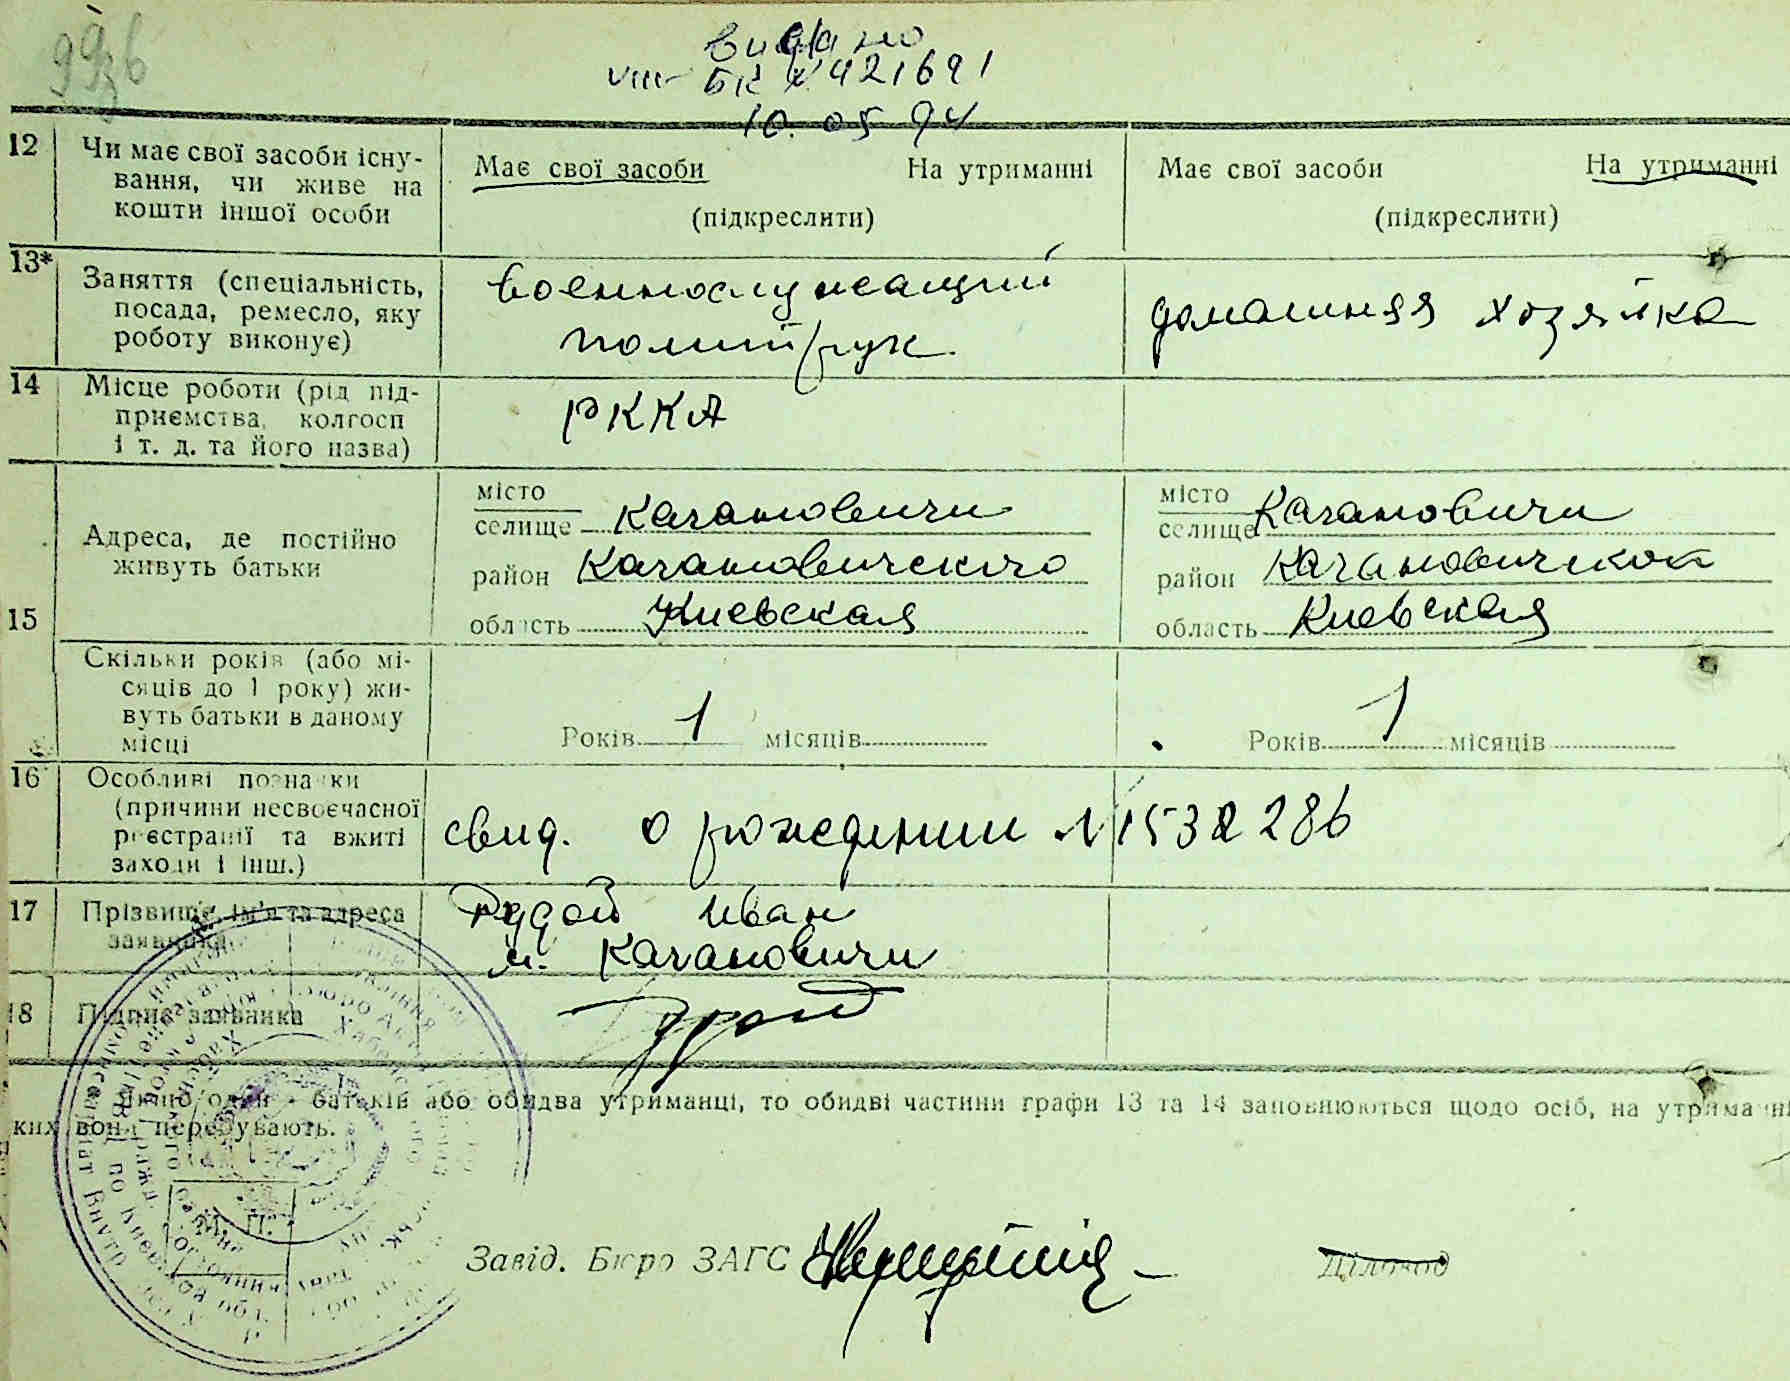 9936
видано
VIII-БК № 421691
10.05 94
12 Чи має свої засоби існу-
вання, чи живе на
кошти іншої особи
Має свої засоби На утриманні
(підкреслити)
Має свої засоби На утриманні
(підкреслити)
13* Заняття (спеціальність,
посада, ремесло, яку
роботу виконує)
военнослужащий
политрук.
домашняя хозяйка
14 Місце роботи (рід під-
приємства, колгосп
і т. д. та його назва)
РККА
15 Адреса, де постійно
живуть батьки
місто
селище Качановичи
район Качановичского
область Киевская
місто
селище Качановичи
район Качановичской
область Киевская
Скільки років (або мі-
сяців до 1 року) жи-
вуть батьки в даному
місці
Років 1 місяців
Років 1 місяців
16 Особливі позначки
(причини несвоєчасної
реєстрації та вжиті
заходи і інш.)
свид. о рождении N 1532286
17 Прізвище, ім'я та адреса
заявника
Рудой Иван
м. Качановичи
18 Підпис заявника
Якщо один з батьків або обидва утриманці, то обидві частини графи 13 та 14 заповнюються щодо осіб, на утриманні
яких вони перебувають.
М. П.
Завід. Бюро ЗАГС
Діловод